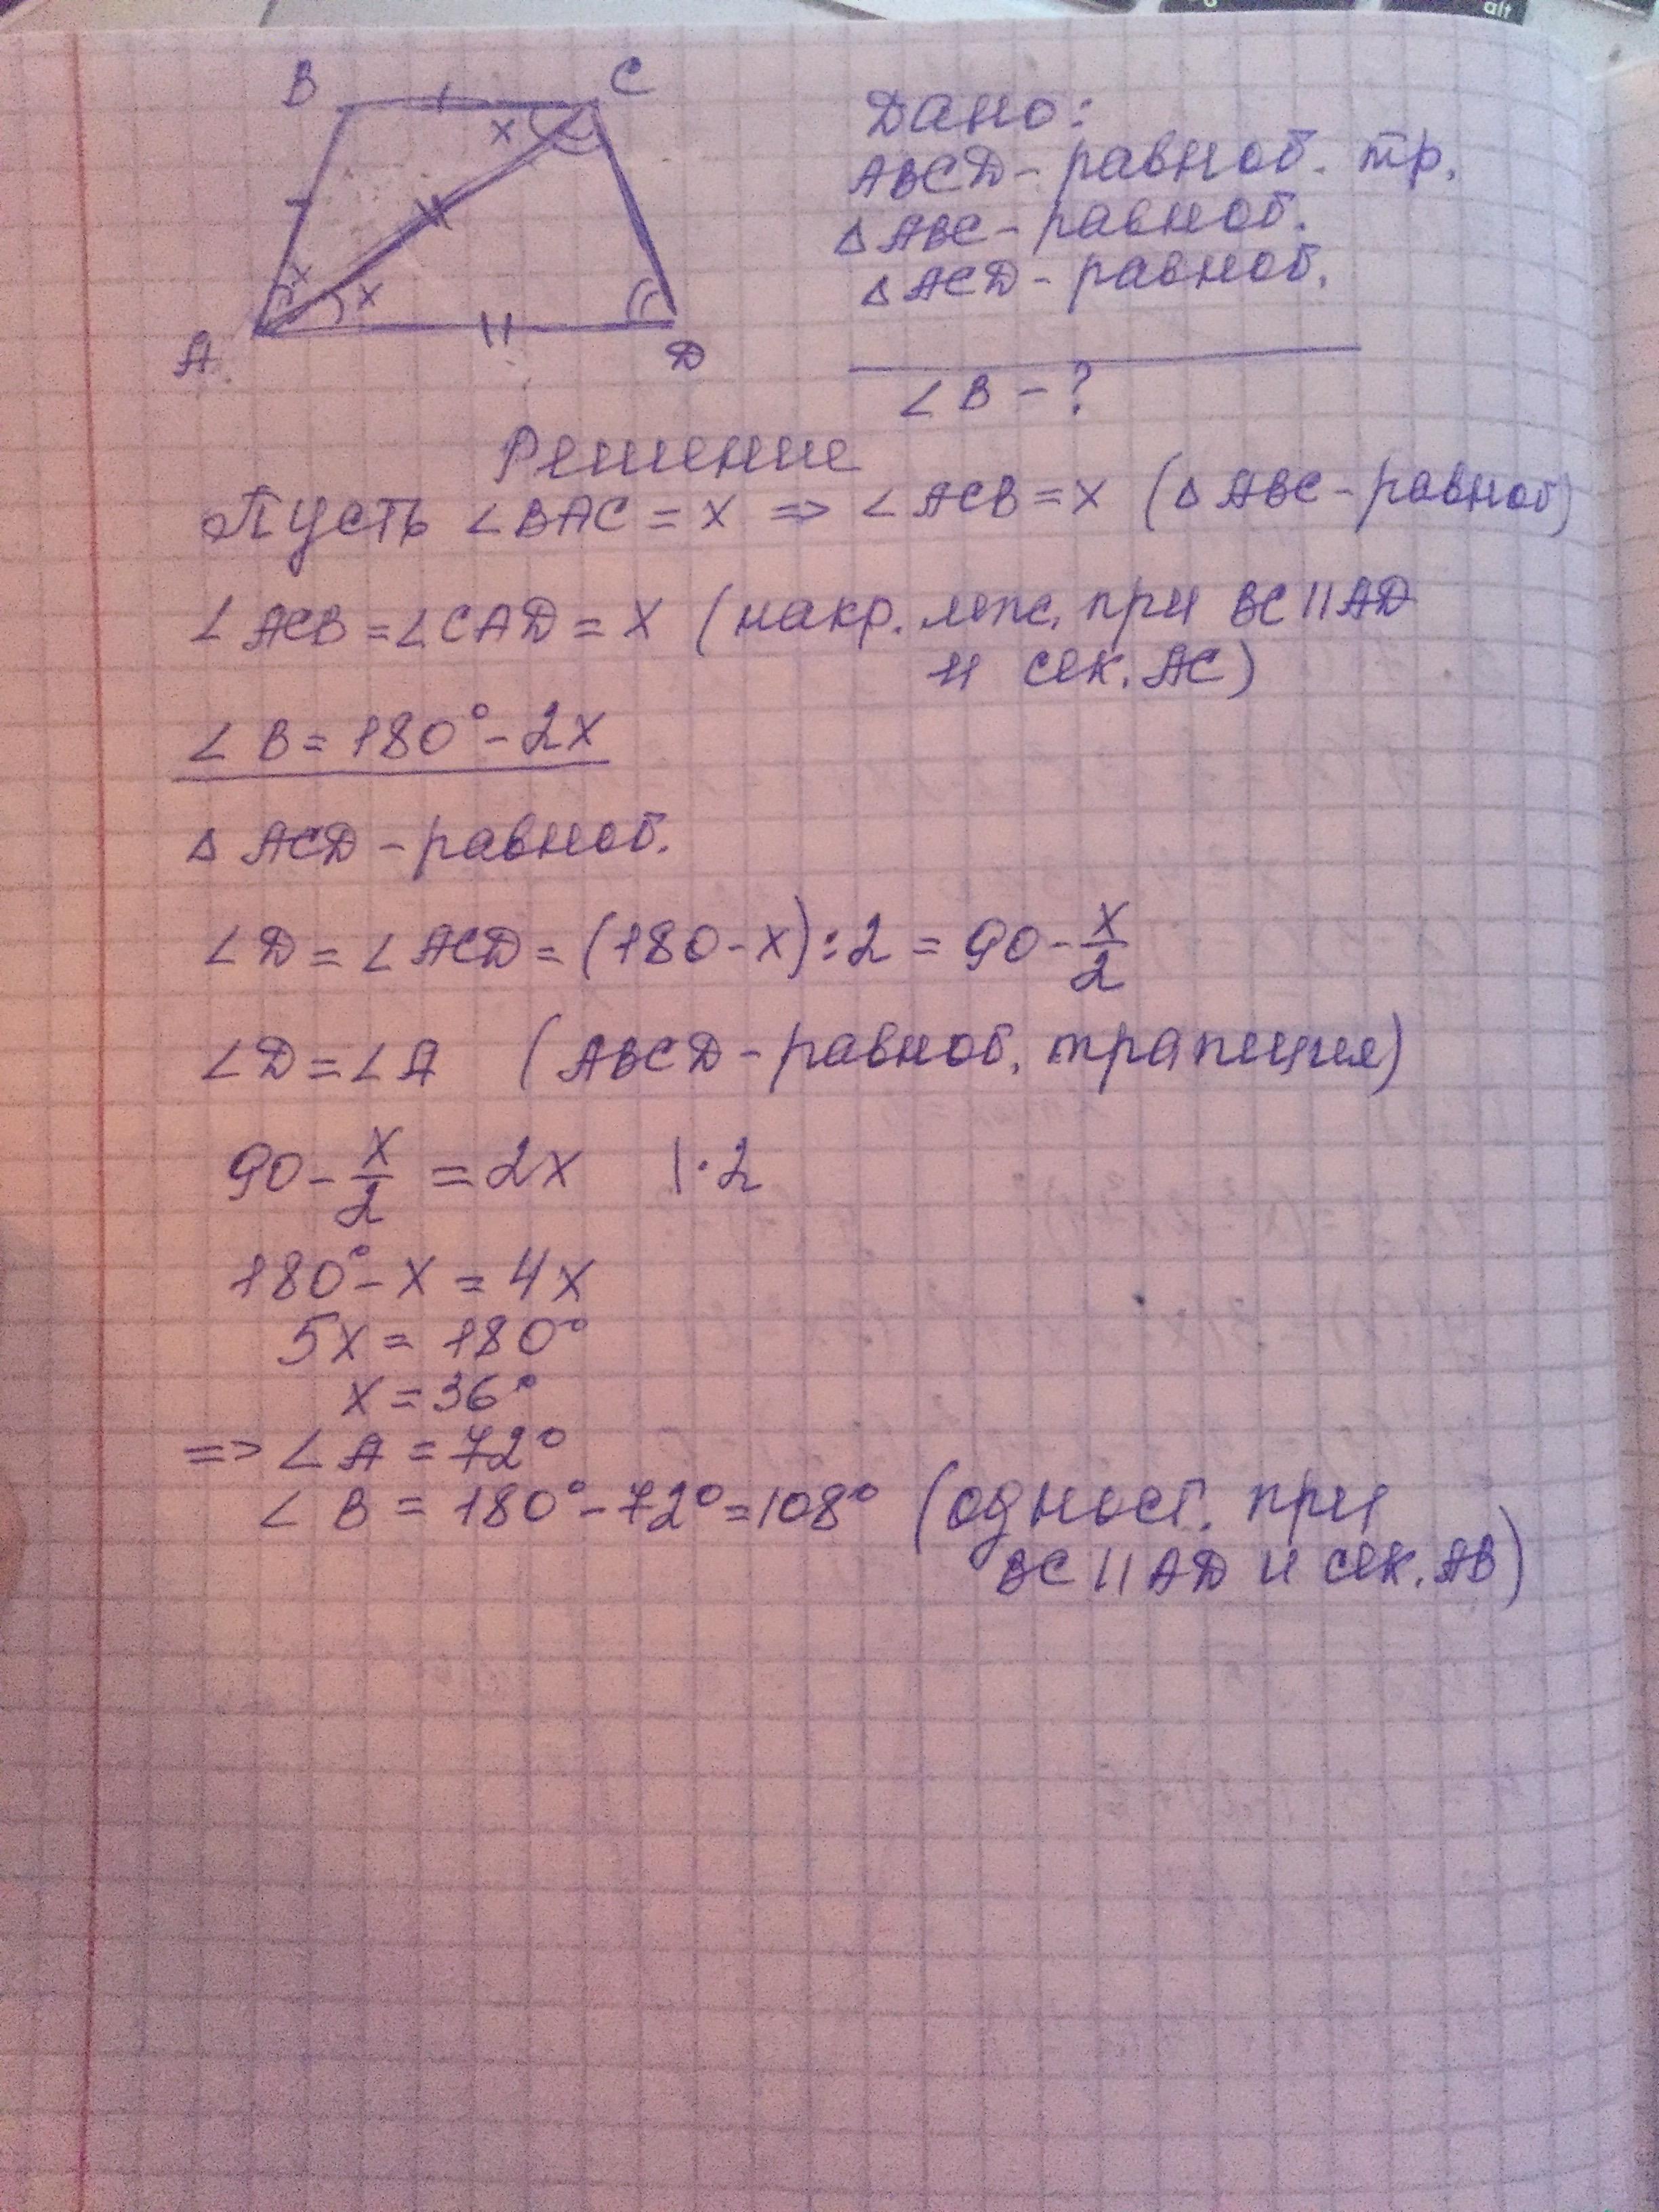 alt
B C
x
x x
A D
Дано:
ABCD - равноб. тр.
△ ABC - равноб.
△ ACD - равноб.
∠ B - ?
Решение
Пусть ∠BAC = x => ∠ACB = x (△ ABC - равноб)
∠ ACB = ∠CAD = x (накр. леж. при BC || AD
и сек. AC)
∠ B = 180° - 2x
△ ACD - равноб.
∠ D = ∠ ACD = (180 - x) : 2 = 90 - x/2
∠ D = ∠ A (ABCD - равноб. трапеция)
90 - x/2 = 2x | · 2
180° - x = 4x
5x = 180°
x = 36°
=> ∠ A = 72°
∠ B = 180° - 72° = 108° (одност. при
BC || AD и сек. AB)